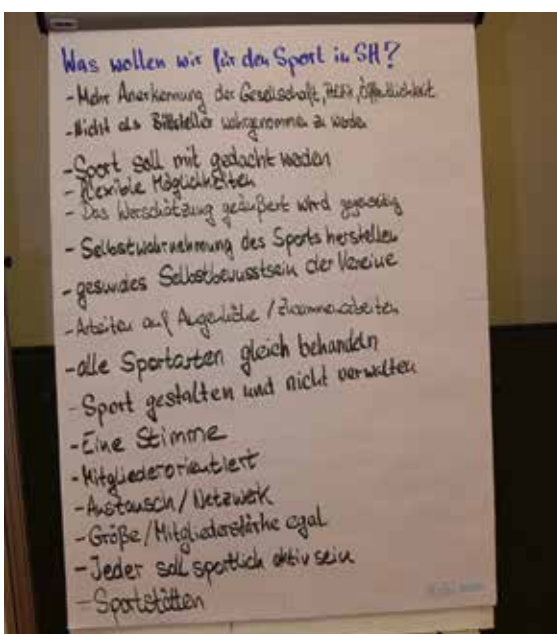 Was wollen wir für den Sport in SH?
- Mehr Anerkennung der Gesellschaft, Politik, Öffentlichkeit
- Nicht als Bittsteller wahrgenommen zu werden
- Sport soll mit gedacht werden
- flexible Möglichkeiten
- Das Wertschätzung geäußert wird gegenseitig
- Selbstwahrnehmung des Sports herstellen
- gesundes Selbstbewusstsein der Vereine
- Arbeiten auf Augenhöhe / zusammenarbeiten
- alle Sportarten gleich behandeln
- Sport gestalten und nicht verwalten
- Eine Stimme
- Mitgliederorientiert
- Austausch / Netzwerk
- Größe / Mitgliederstärke egal
- Jeder soll sportlich aktiv sein
- Sportstätten